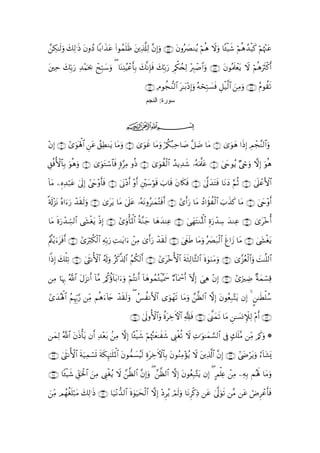 عَنْهُمْ كَيْدُهُمْ شَيْـًٔا وَلَا هُمْ يُنصَرُونَ ﴿٤٦﴾ وَإِنَّ لِلَّذِينَ ظَلَمُوا۟ عَذَابًا دُونَ ذَٰلِكَ وَلَٰكِنَّ
أَكْثَرَهُمْ لَا يَعْلَمُونَ ﴿٤٧﴾ وَٱصْبِرْ لِحُكْمِ رَبِّكَ فَإِنَّكَ بِأَعْيُنِنَا ۖ وَسَبِّحْ بِحَمْدِ رَبِّكَ حِينَ
تَقُومُ ﴿٤٨﴾ وَمِنَ ٱلَّيْلِ فَسَبِّحْهُ وَإِدْبَٰرَ ٱلنُّجُومِ ﴿٤٩﴾
سورة: النجم
بِسْمِ ٱللَّهِ ٱلرَّحْمَٰنِ ٱلرَّحِيمِ
وَٱلنَّجْمِ إِذَا هَوَىٰ ﴿١﴾ مَا ضَلَّ صَاحِبُكُمْ وَمَا غَوَىٰ ﴿٢﴾ وَمَا يَنطِقُ عَنِ ٱلْهَوَىٰٓ ﴿٣﴾ إِنْ
هُوَ إِلَّا وَحْىٌ يُوحَىٰ ﴿٤﴾ عَلَّمَهُۥ شَدِيدُ ٱلْقُوَىٰ ﴿٥﴾ ذُو مِرَّةٍ فَٱسْتَوَىٰ ﴿٦﴾ وَهُوَ بِٱلْأُفُقِ
ٱلْأَعْلَىٰ ﴿٧﴾ ثُمَّ دَنَا فَتَدَلَّىٰ ﴿٨﴾ فَكَانَ قَابَ قَوْسَيْنِ أَوْ أَدْنَىٰ ﴿٩﴾ فَأَوْحَىٰٓ إِلَىٰ عَبْدِهِۦ مَآ
أَوْحَىٰ ﴿١٠﴾ مَا كَذَبَ ٱلْفُؤَادُ مَا رَأَىٰٓ ﴿١١﴾ أَفَتُمَٰرُونَهُۥ عَلَىٰ مَا يَرَىٰ ﴿١٢﴾ وَلَقَدْ رَءَاهُ نَزْلَةً
أُخْرَىٰ ﴿١٣﴾ عِندَ سِدْرَةِ ٱلْمُنتَهَىٰ ﴿١٤﴾ عِندَهَا جَنَّةُ ٱلْمَأْوَىٰٓ ﴿١٥﴾ إِذْ يَغْشَى ٱلسِّدْرَةَ مَا
يَغْشَىٰ ﴿١٦﴾ مَا زَاغَ ٱلْبَصَرُ وَمَا طَغَىٰ ﴿١٧﴾ لَقَدْ رَأَىٰ مِنْ ءَايَٰتِ رَبِّهِ ٱلْكُبْرَىٰٓ ﴿١٨﴾ أَفَرَءَيْتُمُ
ٱللَّٰتَ وَٱلْعُزَّىٰ ﴿١٩﴾ وَمَنَوٰةَ ٱلثَّالِثَةَ ٱلْأُخْرَىٰٓ ﴿٢٠﴾ أَلَكُمُ ٱلذَّكَرُ وَلَهُ ٱلْأُنثَىٰ ﴿٢١﴾ تِلْكَ إِذًا
قِسْمَةٌ ضِيزَىٰٓ ﴿٢٢﴾ إِنْ هِىَ إِلَّآ أَسْمَآءٌ سَمَّيْتُمُوهَآ أَنتُمْ وَءَابَآؤُكُم مَّآ أَنزَلَ ٱللَّهُ بِهَا مِن
سُلْطَٰنٍ ۚ إِن يَتَّبِعُونَ إِلَّا ٱلظَّنَّ وَمَا تَهْوَى ٱلْأَنفُسُ ۖ وَلَقَدْ جَآءَهُم مِّن رَّبِّهِمُ ٱلْهُدَىٰٓ
﴿٢٣﴾ أَمْ لِلْإِنسَٰنِ مَا تَمَنَّىٰ ﴿٢٤﴾ فَلِلَّهِ ٱلْءَاخِرَةُ وَٱلْأُولَىٰ ﴿٢٥﴾
۞ وَكَم مِّن مَّلَكٍ فِى ٱلسَّمَٰوَٰتِ لَا تُغْنِى شَفَٰعَتُهُمْ شَيْـًٔا إِلَّا مِنۢ بَعْدِ أَن يَأْذَنَ ٱللَّهُ لِمَن
يَشَآءُ وَيَرْضَىٰٓ ﴿٢٦﴾ إِنَّ ٱلَّذِينَ لَا يُؤْمِنُونَ بِٱلْءَاخِرَةِ لَيُسَمُّونَ ٱلْمَلَٰٓئِكَةَ تَسْمِيَةَ ٱلْأُنثَىٰ ﴿٢٧﴾
وَمَا لَهُم بِهِۦ مِنْ عِلْمٍ ۖ إِن يَتَّبِعُونَ إِلَّا ٱلظَّنَّ ۖ وَإِنَّ ٱلظَّنَّ لَا يُغْنِى مِنَ ٱلْحَقِّ شَيْـًٔا ﴿٢٨﴾
فَأَعْرِضْ عَن مَّن تَوَلَّىٰ عَن ذِكْرِنَا وَلَمْ يُرِدْ إِلَّا ٱلْحَيَوٰةَ ٱلدُّنْيَا ﴿٢٩﴾ ذَٰلِكَ مَبْلَغُهُم مِّنَ